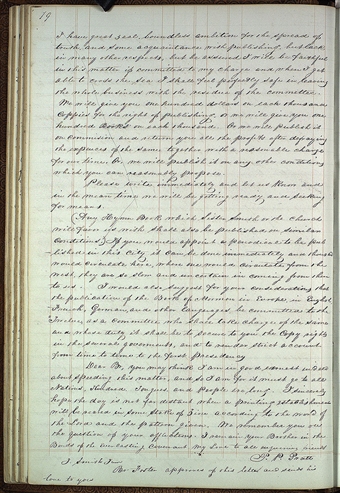 19
I have great zeal, boundless ambition for the spread of
truth and some acquaintance with publishing, but lack
in many other respects, but be assured I will be faithful
in this matter if committed to my charge and when I get
able to cross the sea I shall feel perfectly safe in leaving
the whole business with the residue of the committee.
We will give you one hundred dollars on each thousand
Coppies for the right of publishing, or we will give you one
hundred Books on each thousand. Or we will publish it
on commission and return you all the profits after defraying
the expences of the same together with a reasonable charge
for our time. Or we will publish it on any other conditions
which you can reasonably propose.
Please write immediately and let us know and
in the mean time we will be getting ready and seeking
for means.
(Any Hymn Book which Sister Smith or the Church
will favor us with shall also be published on similar
Conditions) If you would appoint a periodical to be pub
lished in this City it can be done immediately and
would circulate where one would circulate from the
west, they are so slow and uncertain in coming from there
to us. I would also suggest for your consideration that
the publication of the Book of Mormon in Europe, in English
French, German and other Languages be committed to the
Twelve, as a Committee, who shall take charge of the same
and whose duty it shall be to secure to you the Copy right
in the several governments, and to render strict account
from time to time to the first Presidency
Dear Br, You may think I am in good earnest in
about spreading this matter, and so I am for it must go to all
Nations, Kindreds, Tongues and People before long. I sincerely
hope the day is not far distant when a printing establishment
will be reared in some Stake of Zion according to the word of
the Lord and the pattern given. We remember you and
the question of your afflictions. I remain your Brother in the
Bonds of the everlasting Covenant, my Love to all enquiring friends
P. P. Pratt
J. Smith Jr
Br Foster approves of this letter and sends his
love to you